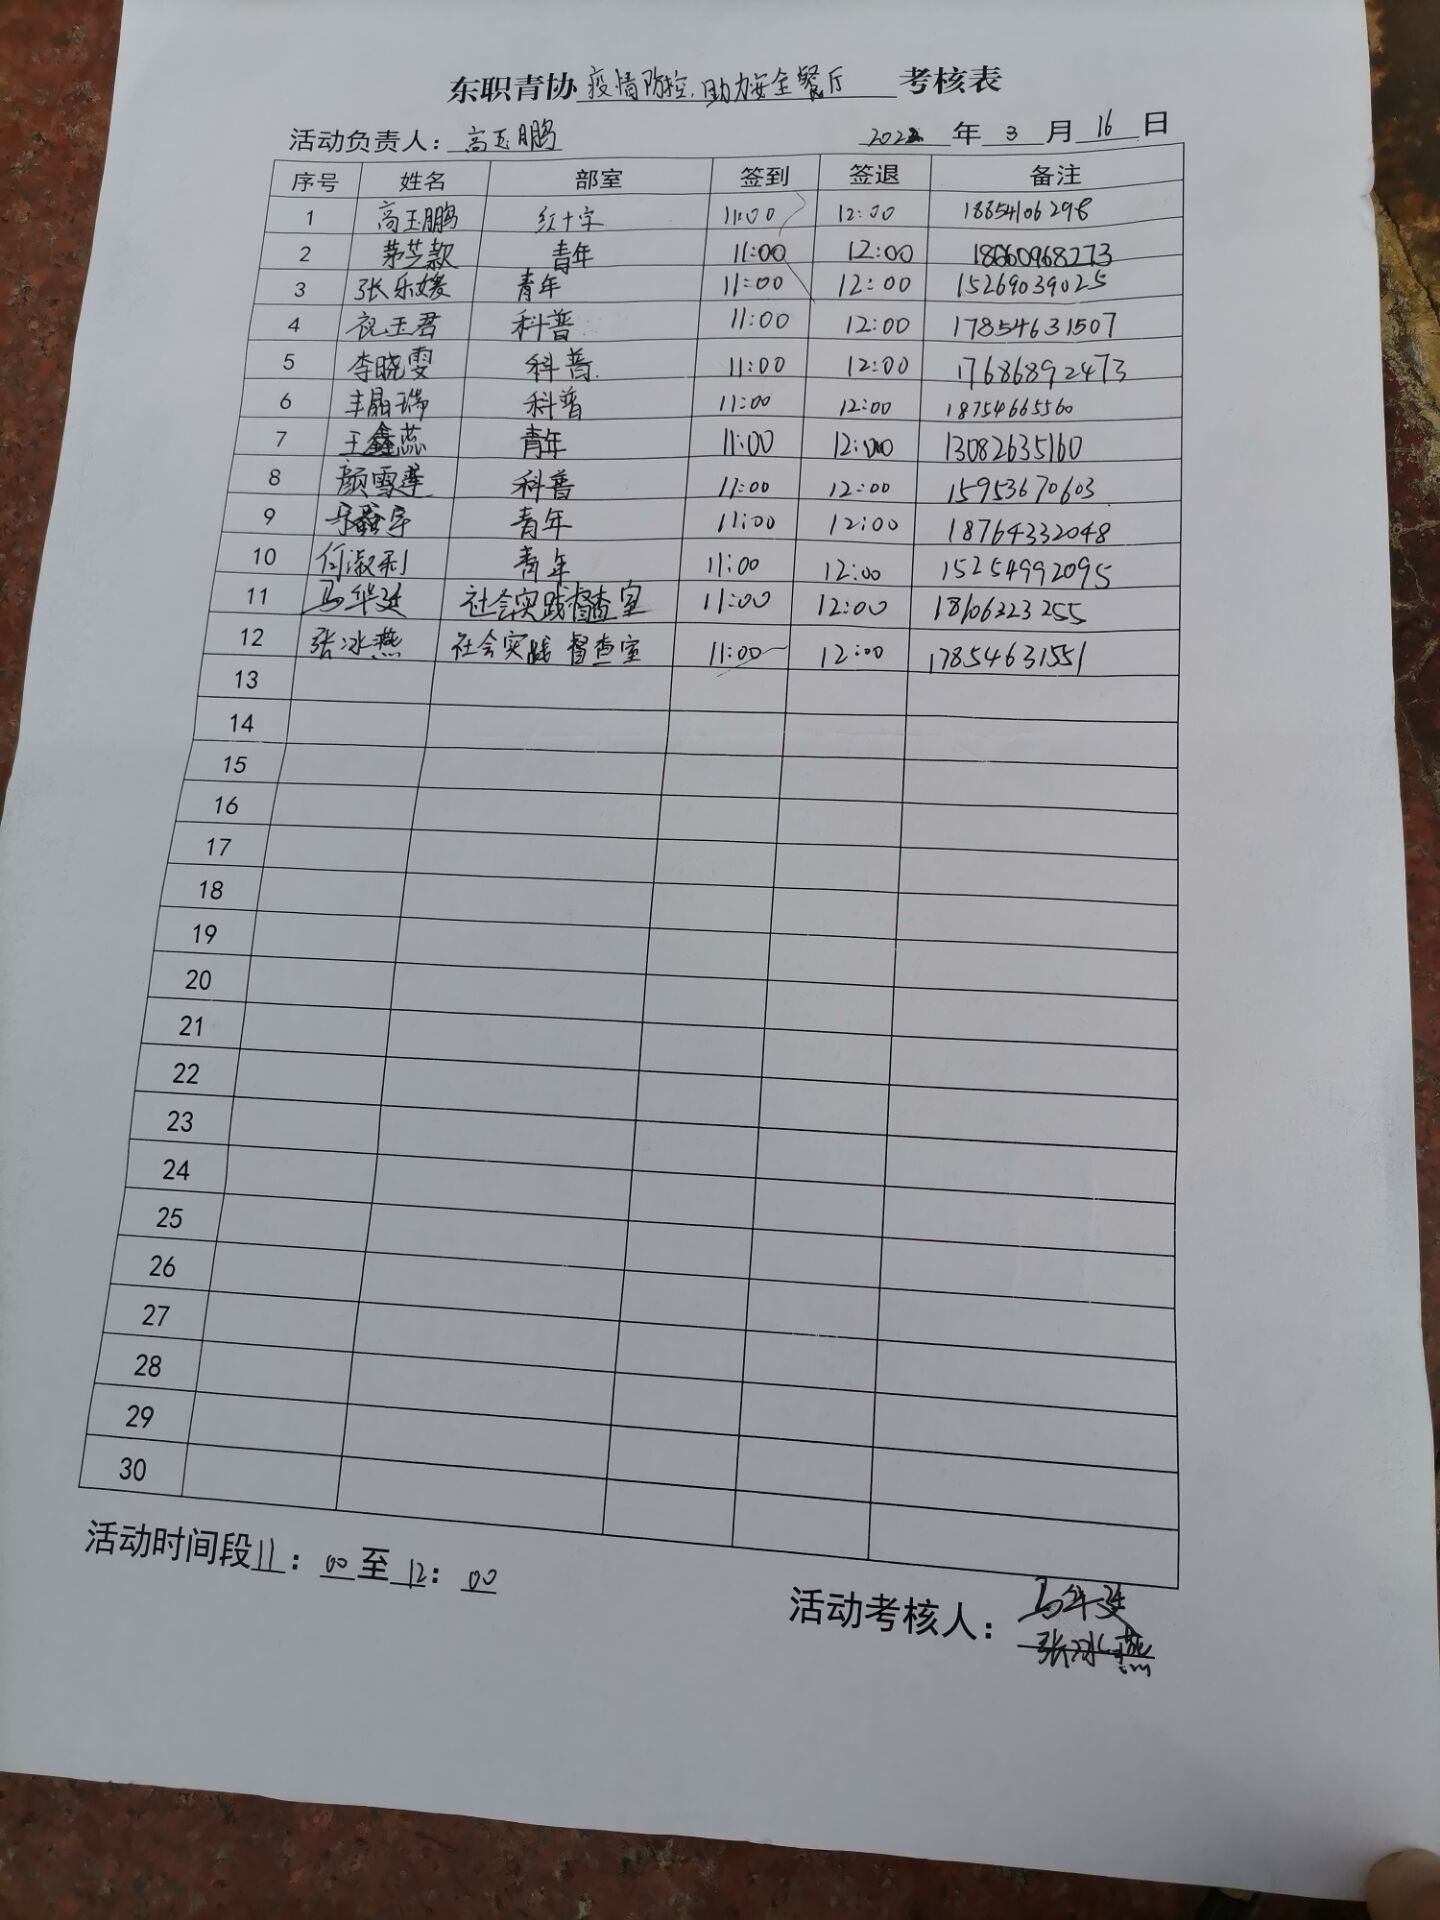 东职青协 疫情防控,助力安全餐厅 考核表
活动负责人: 高玉鹏 2022 年 3 月 16 日
序号 姓名 部室 签到 签退 备注
1 高玉鹏 红十字 11:00 12:00 18854106298
2 茅芝款 青年 11:00 12:00 18660968273
3 张乐媛 青年 11:00 12:00 15269039025
4 祝玉君 科普 11:00 12:00 17854631507
5 李晓雯 科普 11:00 12:00 17686892473
6 丰晶瑞 科普 11:00 12:00 18754665560
7 王鑫蕊 青年 11:00 12:00 13082635160
8 颜雪莲 科普 11:00 12:00 15953670603
9 青年 11:00 12:00 18764332048
10 何淑利 青年 11:00 12:00 15254992095
11 马华廷 社会实践督查室 11:00 12:00 18606323255
12 张冰燕 社会实践 督查室 11:00 12:00 17854631551
13
14
15
16
17
18
19
20
21
22
23
24
25
26
27
28
29
30
活动时间段11:00至12:00
活动考核人: 马华廷
张冰燕